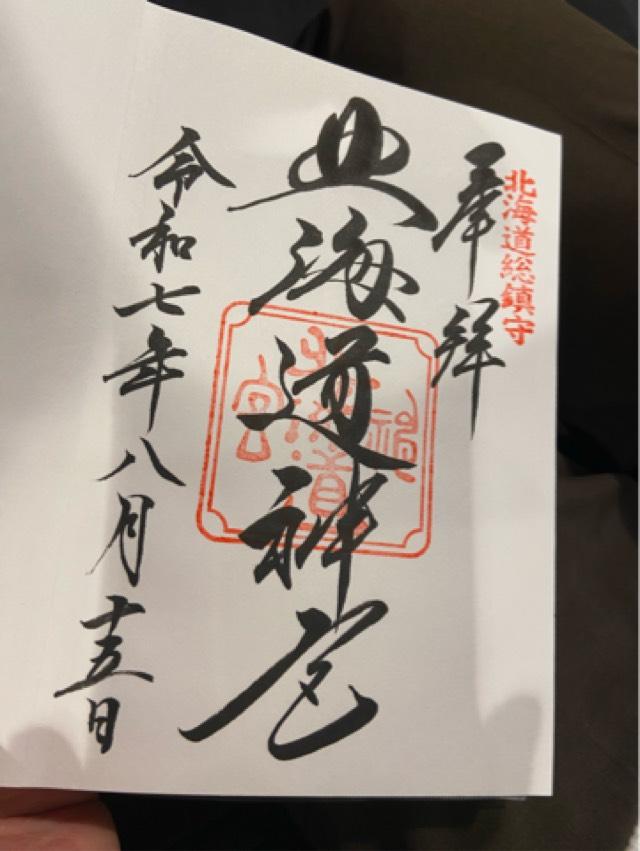 北海道総鎮守
奉拝
北海道神宮
北海道神宮
令和七年八月十五日